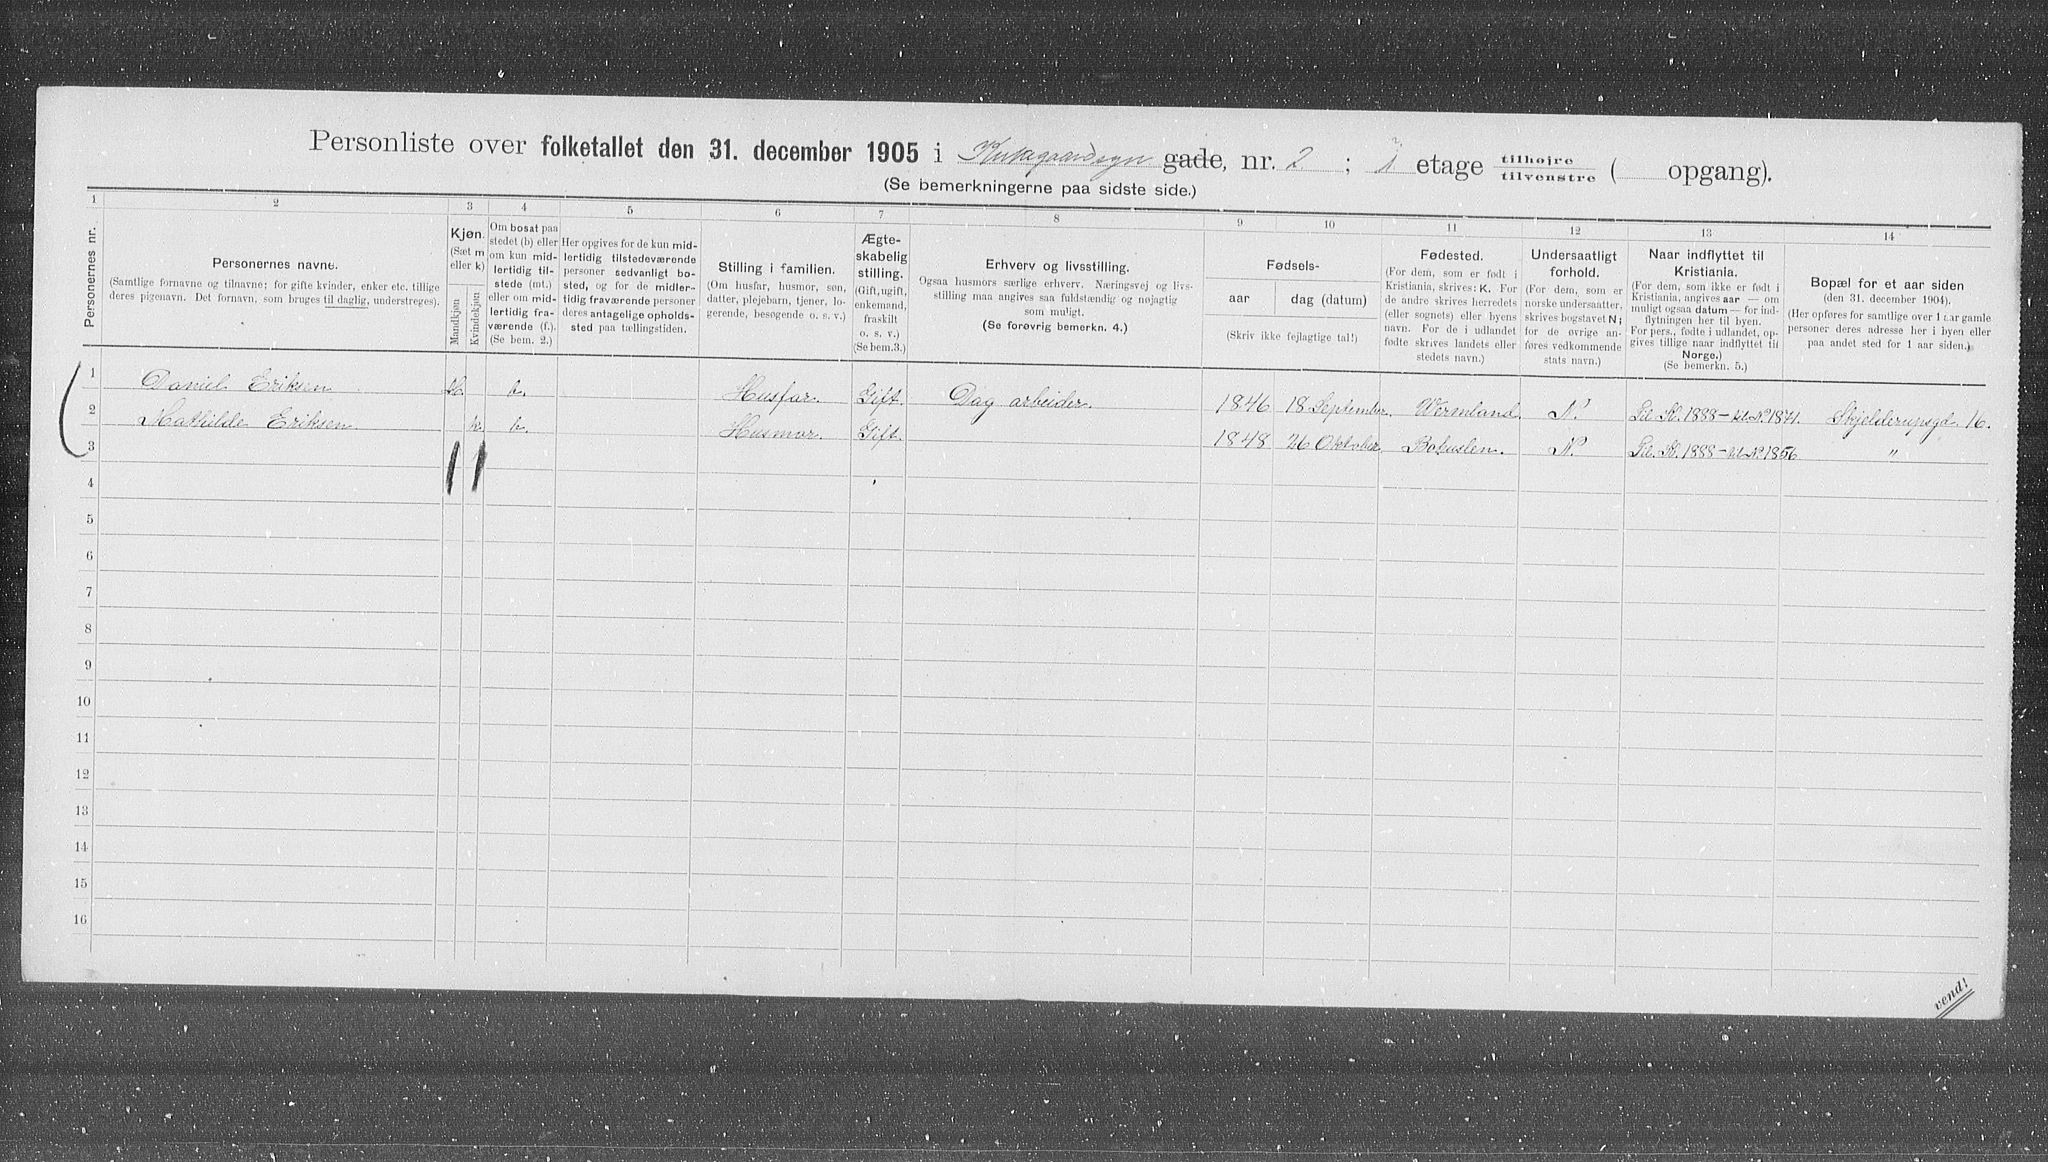 Personliste over folketallet den 31. december 1905 i gade, nr. 2 ; etage tilhøjre tilvenstre ( opgang).
(Se bemerkningerne paa sidste side.)
1 2 3 4 5 6 7 8 9 10 11 12 13 14
Personernes nr.
Personernes navne.
(Samtlige fornavne og tilnavne; for gifte kvinder, enker etc. tillige
deres pigenavn. Det fornavn, som bruges til daglig, understreges).
Kjøn.
(Sæt m
eller k)
Mandkjøn
Kvindekjøn
Om bosat paa
stedet (b) eller
om kun mid-
lertidig til-
stede (mt.)
eller om mid-
lertidig fra-
værende (f.).
(Se bem. 2.)
Her opgives for de kun mid-
lertidig tilstedeværende
personer sedvanligt bo-
sted, og for de midler-
tidig fraværende personer
deres antagelige opholds-
sted paa tællingstiden.
Stilling i familien.
(Om husfar, husmor, søn,
datter, plejebarn, tjener, lo-
gerende, besøgende o. s. v.)
Ægte-
skabelig
stilling.
(Gift, ugift,
enkemand,
fraskilt
o. s. v.)
(Se bem. 3.)
Erhverv og livsstilling.
Ogsaa husmors særlige erhverv. Næringsvej og livs-
stilling maa angives saa fuldstændig og nøjagtig
som muligt.
(Se forøvrig bemerkn. 4.)
Fødsels-
aar dag (datum)
(Skriv ikke fejlagtige tal!)
Fødested.
(For dem, som er født i
Kristiania, skrives: K. For
de andre skrives herredets
(eller sognets) eller byens
navn. For de i udlandet
fødte skrives landets eller
stedets navn.)
Undersaatligt
forhold.
(For dem, som er
norske undersaatter,
skrives bogstavet N;
for de øvrige an-
føres vedkommende
stats navn.)
Naar indflyttet til
Kristiania.
(For dem, som ikke er født i
Kristiania, angives aar — om
muligt ogsaa datum — for ind-
flytningen her til byen.
For pers., fødte i udlandet, op-
gives tillige naar indflyttet til
Norge.)
(Se bemerkn. 5.)
Bopæl for et aar siden
(den 31. december 1904).
(Her opføres for samtlige over 1 aar gamle
personer deres adresse her i byen eller
paa andet sted for 1 aar siden.)
1 Daniel Eriksen M. b. Husfar. Gift. Dag arbeider. 1846 18 September. Wermland. N. Til K. 1888 - til N. 1871. Skjelderupsgd. 16.
2 Mathilde Eriksen k. b. Husmor. Gift. 1848 26 Oktober. Bohuslen. N. Til K. 1888 - til N. 1856 "
3
4
5
6
7
8
9
10
11
12
13
14
15
16
vend!